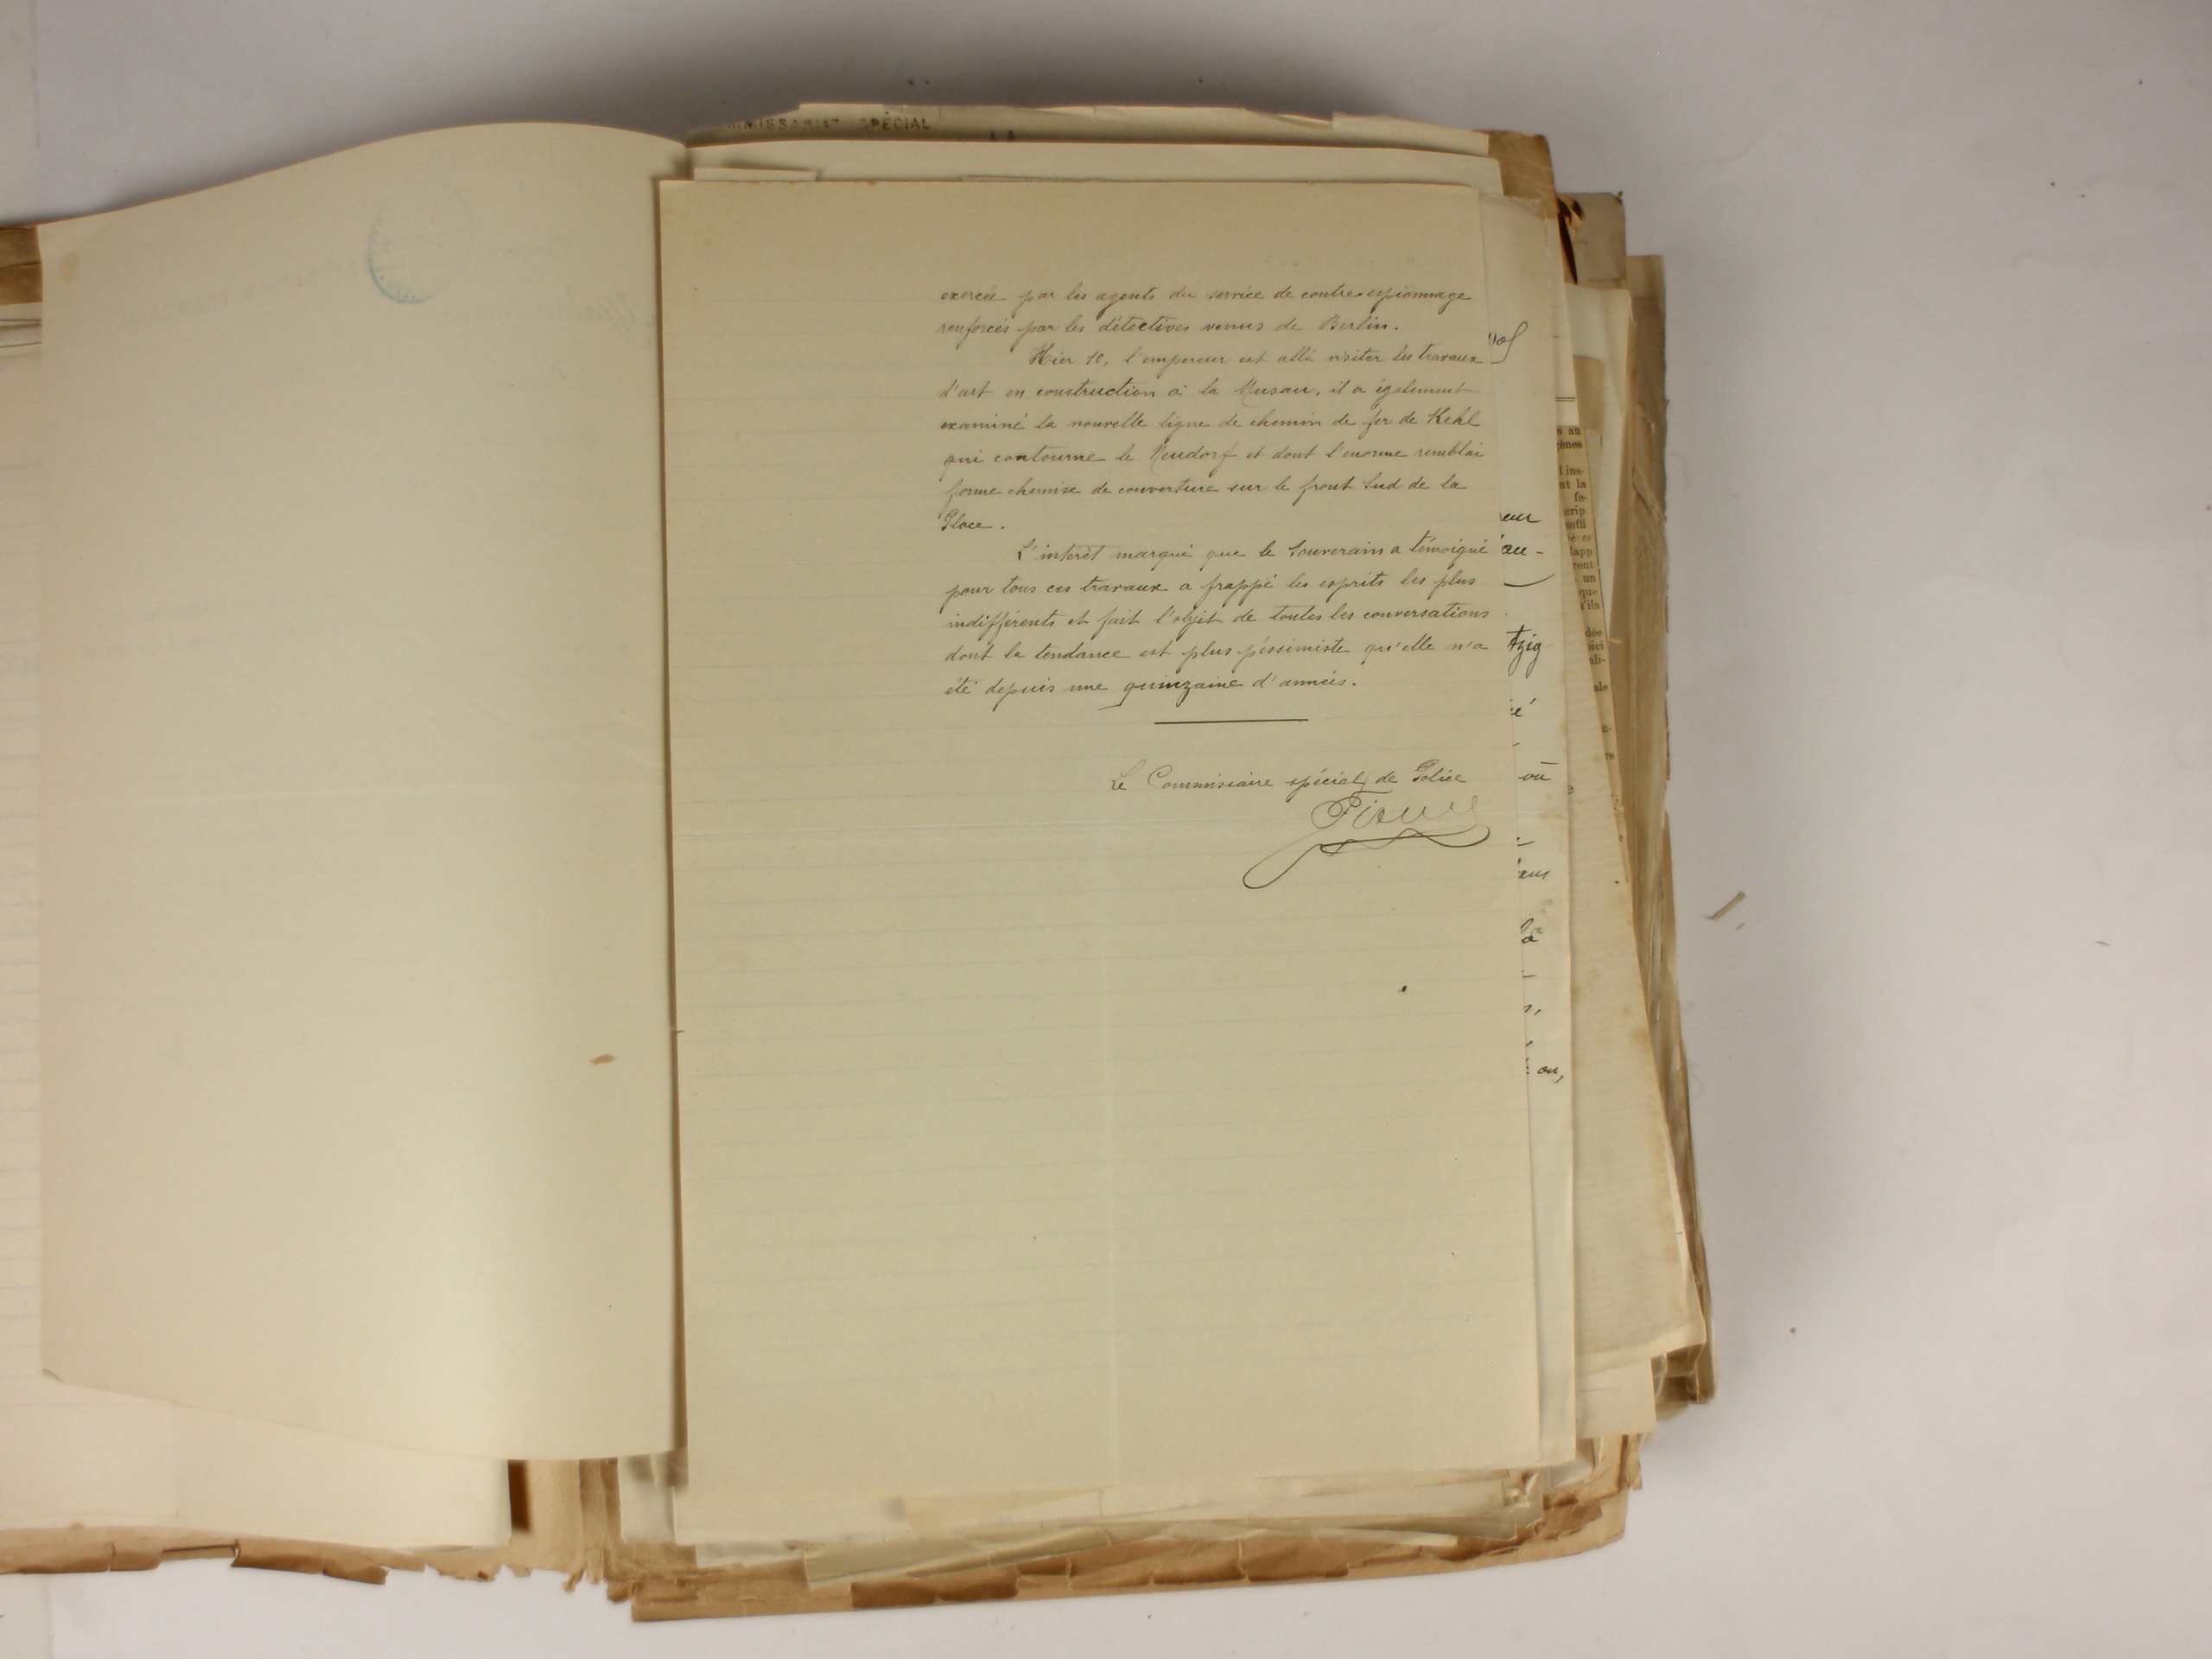 MMISSARIAT SPÉCIAL
exercée par les agents du service de contre-espionnage
renforcés par les détectives venus de Berlin.
Hier 10, l'empereur est allé visiter les travaux
d'art en construction à la Musau, il a également
examiné la nouvelle ligne de chemin de fer de Kehl
qui contourne le Neudorf et dont l'énorme remblai
forme chemise de couverture sur le front Sud de la
Place.
L'intérêt marqué que le Souverain a témoigné
pour tous ces travaux a frappé les esprits les plus
indifférents et fait l'objet de toutes les conversations
dont la tendance est plus péssimiste qu'elle n'a
été depuis une quinzaine d'années.
Le Commissaire spécial de Police
eur
au-
tzig
où
la
ou,